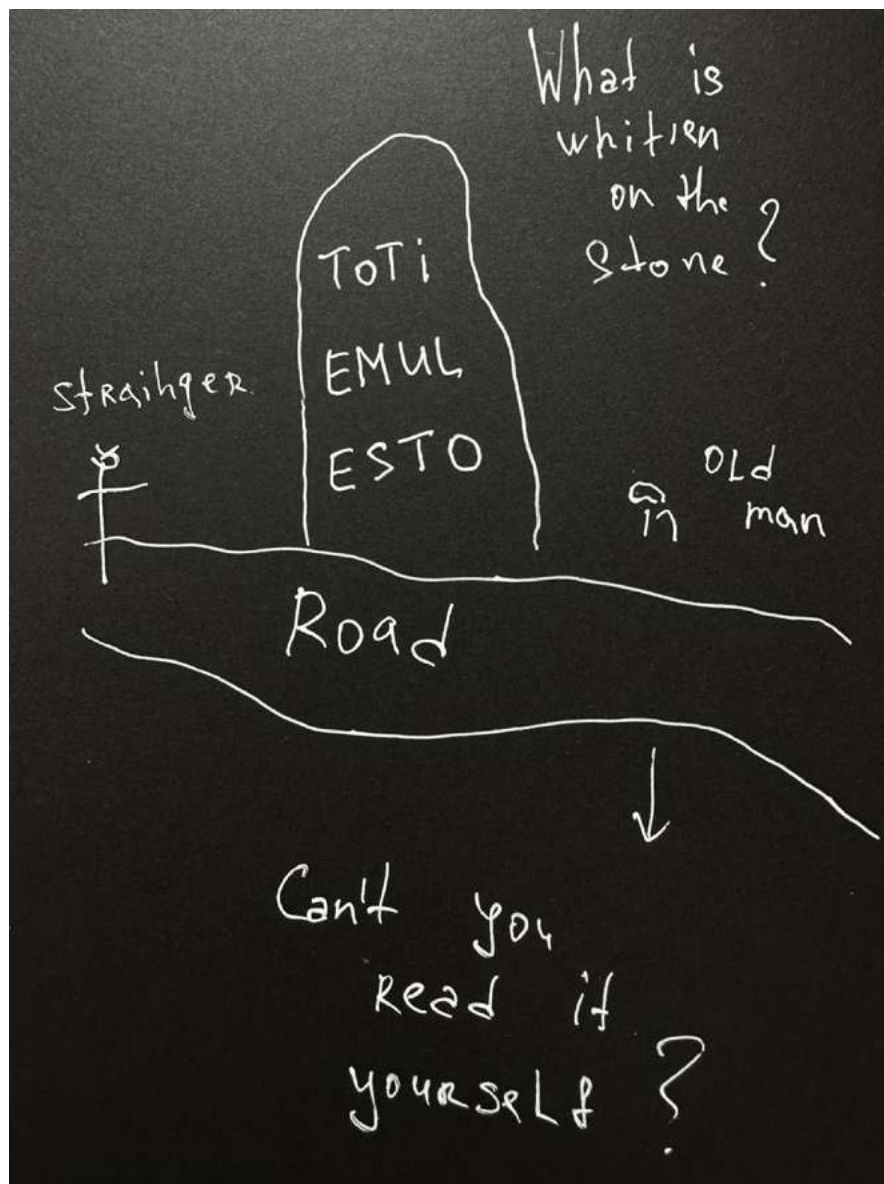 What is
whitten
on the
Stone?
ToTi
EMUL
ESTO
StRaihgeR
OLd
man
Road
Can't you
Read it
yourseLf?